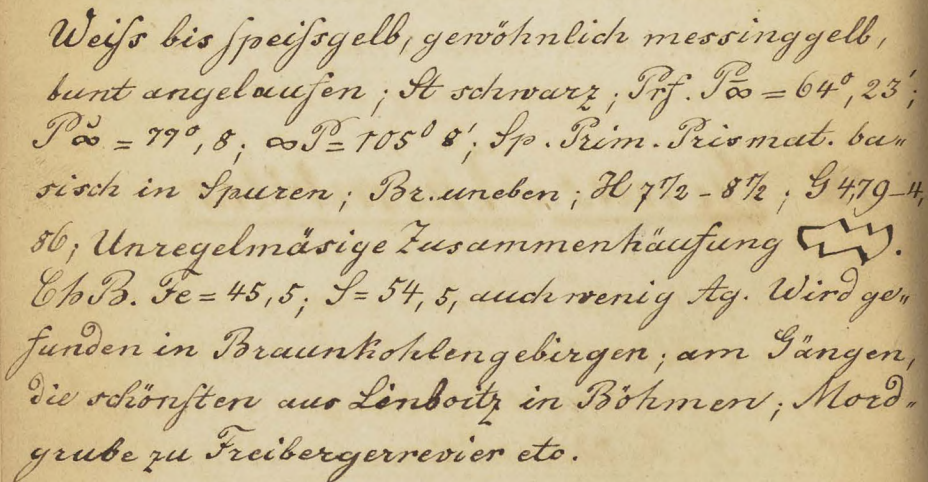 Weiſs bis ſpeiſsgelb, gewöhnlich messinggelb,
bunt angelaufen; St schwarz; Prf. P̄∞ = 64°, 23′;
P̆∞ = 77°, 8; ∞P = 105° 8′; Sp. Prim. Prismat. ba„
sisch in Spuren; Br. uneben; H 7½ - 8½; G 4,79 - 4,
86; Unregelmäsige Zusammenhäufung .
Ch B. Fe = 45, 5; S = 54, 5, auch wenig Ag. Wird ge„
funden in Braunkohlengebirgen; am Gängen,
die schönſten aus in Böhmen; Mord„
grube zu Freibergerrevier etc.